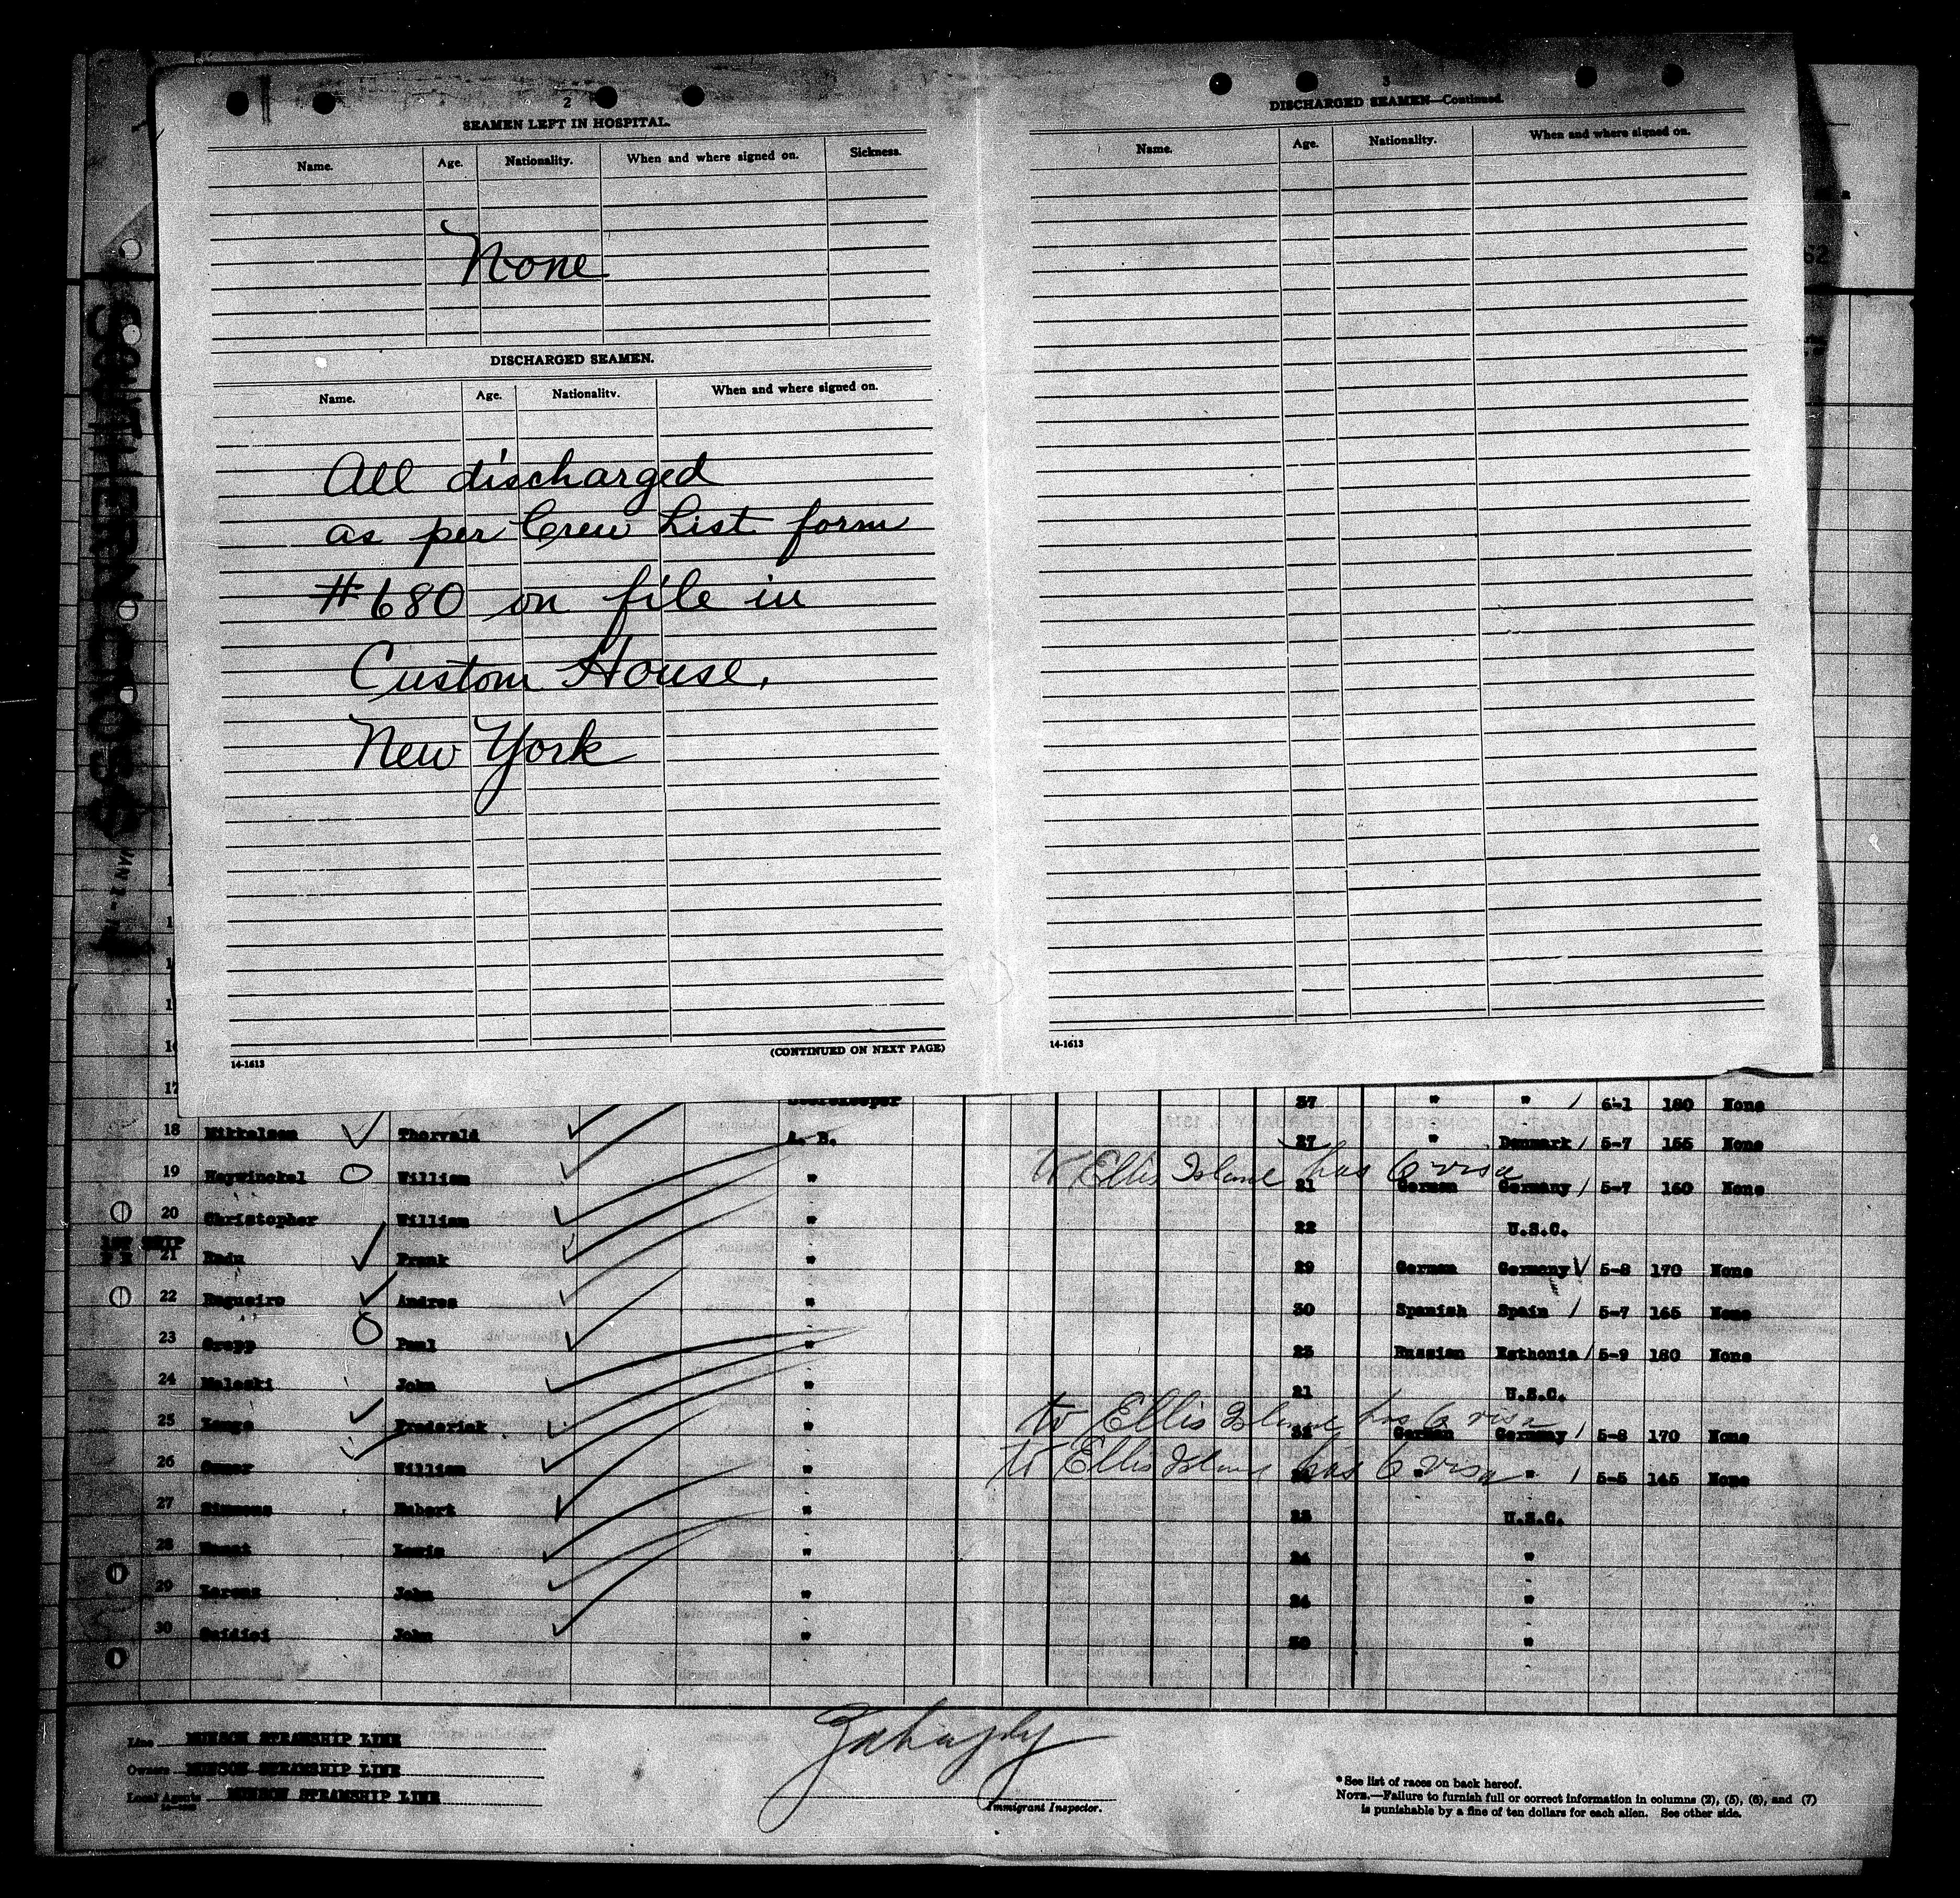 2
SEAMEN LEFT IN HOSPITAL.
Name. Age. Nationality. When and where signed on. Sickness.
None
DISCHARGED SEAMEN.
Name. Age. Nationality. When and where signed on.
All discharged
as per Crew List form
#680 on file in
Custom House,
New York
14-1613 (CONTINUED ON NEXT PAGE)
3
DISCHARGED SEAMEN—Continued.
Name. Age. Nationality. When and where signed on.
14-1613
SOUTHERN CROSS
62
17 Storekeeper 37 " " 6-1 180 None
18 Mikkelsen Thorvald A. B. 27 " Denmark 5-7 155 None
to Ellis Island has 6 visa
19 Heywinckel William " 21 German Germany 5-7 160 None
20 Christopher William " 22 U.S.C.
1ST SHIP
21 Frank " 29 German Germany 5-8 170 None
22 Regueiro Andres " 30 Spanish Spain 5-7 165 None
23 Paul " 23 Russian Esthonia 5-9 180 None
24 Maleski John " 21 U.S.C.
to Ellis Island has 6 visa
25 Frederick " German Germany 5-8 170 None
to Ellis Island has 6 visa
26 William " " " 5-5 145 None
27 Simmons Hubert " 23 U.S.C.
28 Lewis " 24 "
29 Lorenz John " 24 "
30 John " "
Line MUNSON STEAMSHIP LINE
Owners MUNSON STEAMSHIP LINE
Local Agents MUNSON STEAMSHIP LINE
Immigrant Inspector.
* See list of races on back hereof.
NOTE.—Failure to furnish full or correct information in columns (2), (5), (6), and (7)
is punishable by a fine of ten dollars for each alien. See other side.